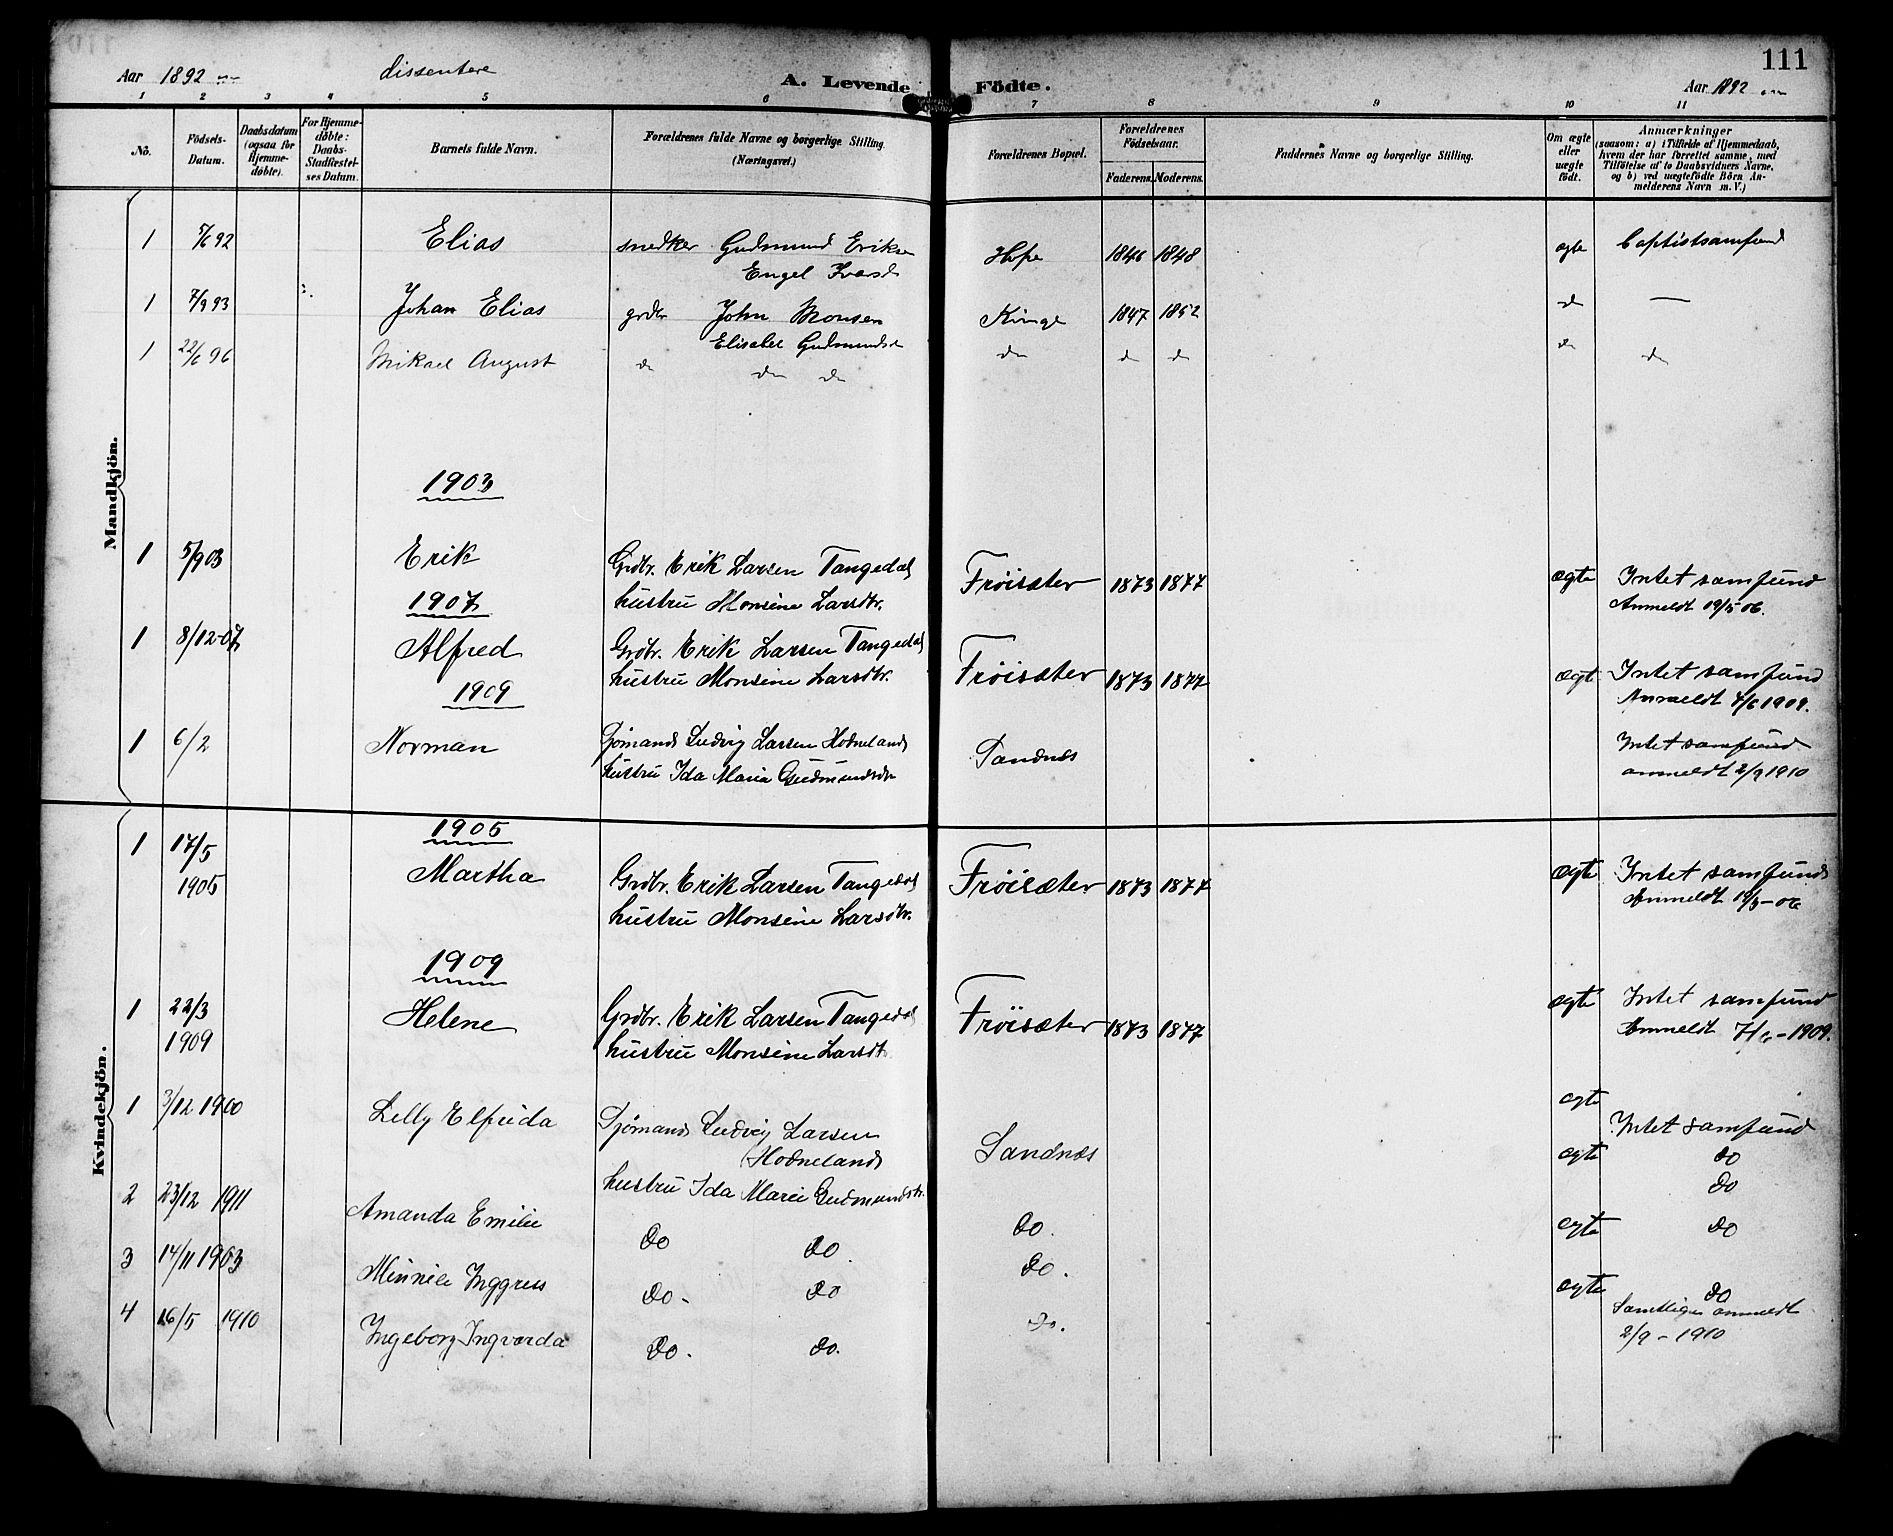 111
Aar 1892 dissentere A. Levende Födte. Aar 1892
1 2 3 4 5 6 7 8 9 10 11
No. Födsels-Datum. Daabsdatum (ogsaa for Hjemme-døbte). For Hjemme-døbte: Daabs-Stadfæstel-ses Datum. Barnets fulde Navn. Forældrenes fulde Navne og borgerlige Stilling. (Næringsvei.) Forældrenes Bopæl. Forældrenes Födselsaar. Faderens. Moderens. Faddernes Navne og borgerlige Stilling. Om ægte eller uægte født. Anmærkninger (saasom: a) i Tilfælde af Hjemmedaab, hvem der har forrettet samme, med Tilföielse af to Daabsvidners Navne, og b) ved uægtefödte Börn An-melderens Navn m. V.)
Mandkjön.
1 5/6 92 Elias snedker Gudmund Eriksen Hope 1846 1848 ægte Baptistsamfund
Engel
1 7/9 93 Johan Elias grdbr John Monsen Kinge 1847 1852 do —
Elisabet Gudmundsd
1 22/6 96 Mikael August do do do do do do do do
1903
1 5/9 03 Erik Grdbr. Erik Larsen Tangedal Frøisæter 1873 1877 ægte Intet samfund
hustru Monsine Larsdtr. Anmeldt 19/5 06.
1907
1 8/12-07 Alfred Grdbr. Erik Larsen Tangedal Frøisæter 1873 1877 ægte Intet samfund
hustru Monsine Larsdtr. Anmeldt 7/6 1909.
1909
1 6/2 Norman Sjømand Ludvig Larsen Hodneland Sandnæs Intet samfund
hustru Ida Maria Gudmundsdtr anmeldt 2/9 1910
Kvindekjön.
1905
1 17/5 1905 Martha Grdbr. Erik Larsen Tangedal Frøisæter 1873 1877 ægte Intet samfund
hustru Monsine Larsdtr. Anmeldt 19/5-06
1909
1 22/3 1909 Helene Grdbr. Erik Larsen Tangedal Frøisæter 1873 1877 ægte Intet samfund
hustru Monsine Larsdt Anmeldt 7/6-1909.
1 3/12 1900 Lelly Elfrida Sjømand Ludvig Larsen Hodneland Sandnæs ægte Intet samfund
hustru Ida Marie Gudmundsdtr. ægte do
do
2 23/12 1911 Amanda Emilie do do do. ægte do
3 14/11 1903 Minnie Inggress do- do do. ægte do
4 16/5 1910 Ingeborg Ingvarda do. do. do.
Samtlige anmeldt
2/9-1910